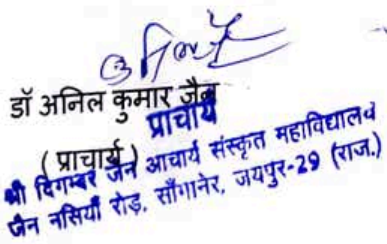 डॉ अनिल कुमार जैन
प्राचार्य
( प्राचार्य )
श्री दिगम्बर जैन आचार्य संस्कृत महाविद्यालय
जैन नसियाँ रोड़, साँगानेर, जयपुर-29 (राज.)